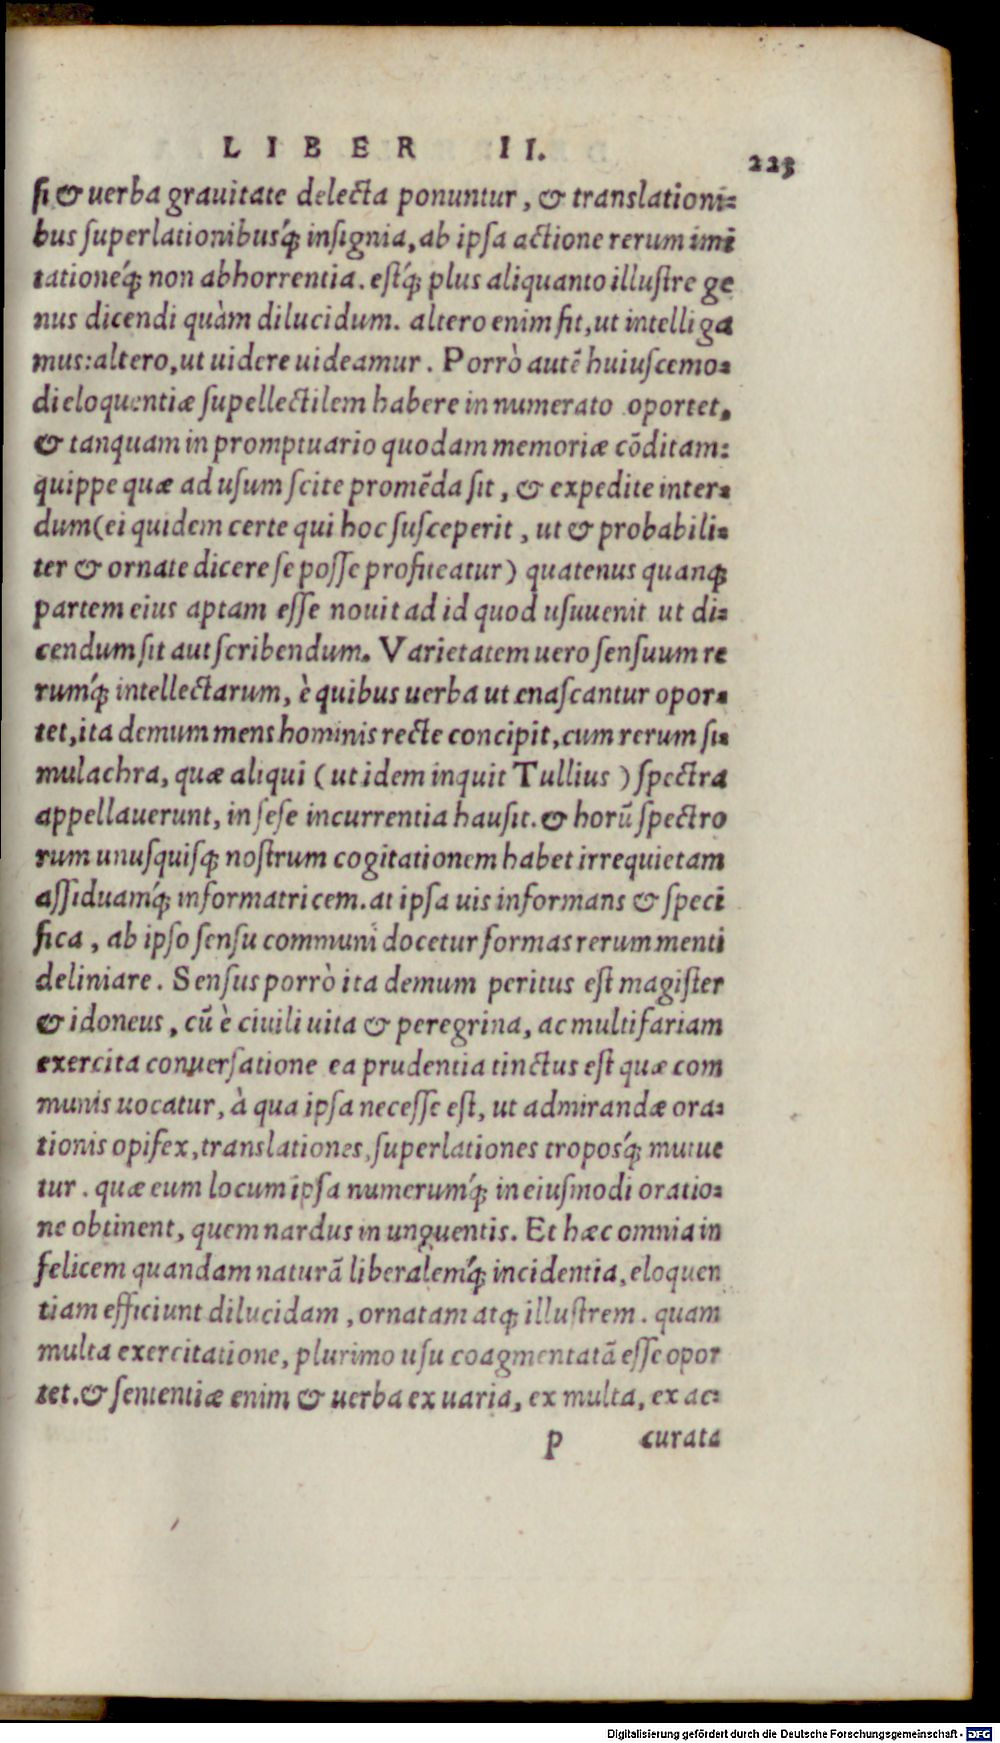 LIBER II. 223
ſi & uerba grauitate delecta ponuntur, & translationi=
bus ſuperlationibusq́ꝫ inſignia, ab ipſa actione rerum imi
tationeq́ꝫ non abhorrentia. eſtq́ꝫ plus aliquanto illuſtre ge
nus dicendi quàm dilucidum. altero enim fit, ut intelliga
mus: altero, ut uidere uideamur. Porrò autẽ huiuſcemo=
di eloquentiæ ſupellectilem habere in numerato oportet,
& tanquam in promptuario quodam memoriæ cõditam:
quippe quæ ad uſum ſcite promẽda ſit, & expedite inter=
dum (ei quidem certe qui hoc ſuſceperit, ut & probabili=
ter & ornate dicere ſe poſſe profiteatur) quatenus quanqꝫ
partem eius aptam eſſe nouit ad id quod uſuuenit ut di=
cendum ſit aut ſcribendum. Varietatem uero ſenſuum re
rumq́ꝫ intellectarum, è quibus uerba ut enaſcantur opor=
tet, ita demum mens hominis recte concipit, cum rerum ſi=
mulachra, quæ aliqui (ut idem inquit Tullius) ſpectra
appellauerunt, in ſeſe incurrentia hauſit. & horũ ſpectro
rum unuſquiſqꝫ noſtrum cogitationem habet irrequietam
aſſiduamq́ꝫ informatricem. at ipſa uis informans & ſpeci
fica, ab ipſo ſenſu communi docetur formas rerum menti
deliniare. Senſus porrò ita demum peritus eſt magiſter
& idoneus, cũ è ciuili uita & peregrina, ac multifariam
exercita conuerſatione ea prudentia tinctus eſt quæ com
munis uocatur, à qua ipſa neceſſe eſt, ut admirandæ ora=
tionis opifex, translationes, ſuperlationes troposq́ꝫ mutue
tur. quæ eum locum ipſa numerumq́ꝫ in eiuſmodi oratio=
ne obtinent, quem nardus in unguentis. Et hæc omnia in
felicem quandam naturã liberalemq́ꝫ incidentia, eloquen
tiam efficiunt dilucidam, ornatam atqꝫ illuſtrem. quam
multa exercitatione, plurimo uſu coagmentatã eſſe opor
tet. & ſententiæ enim & uerba ex uaria, ex multa, ex ac=
p curata
Digitalisierung gefördert durch die Deutsche Forschungsgemeinschaft - DFG